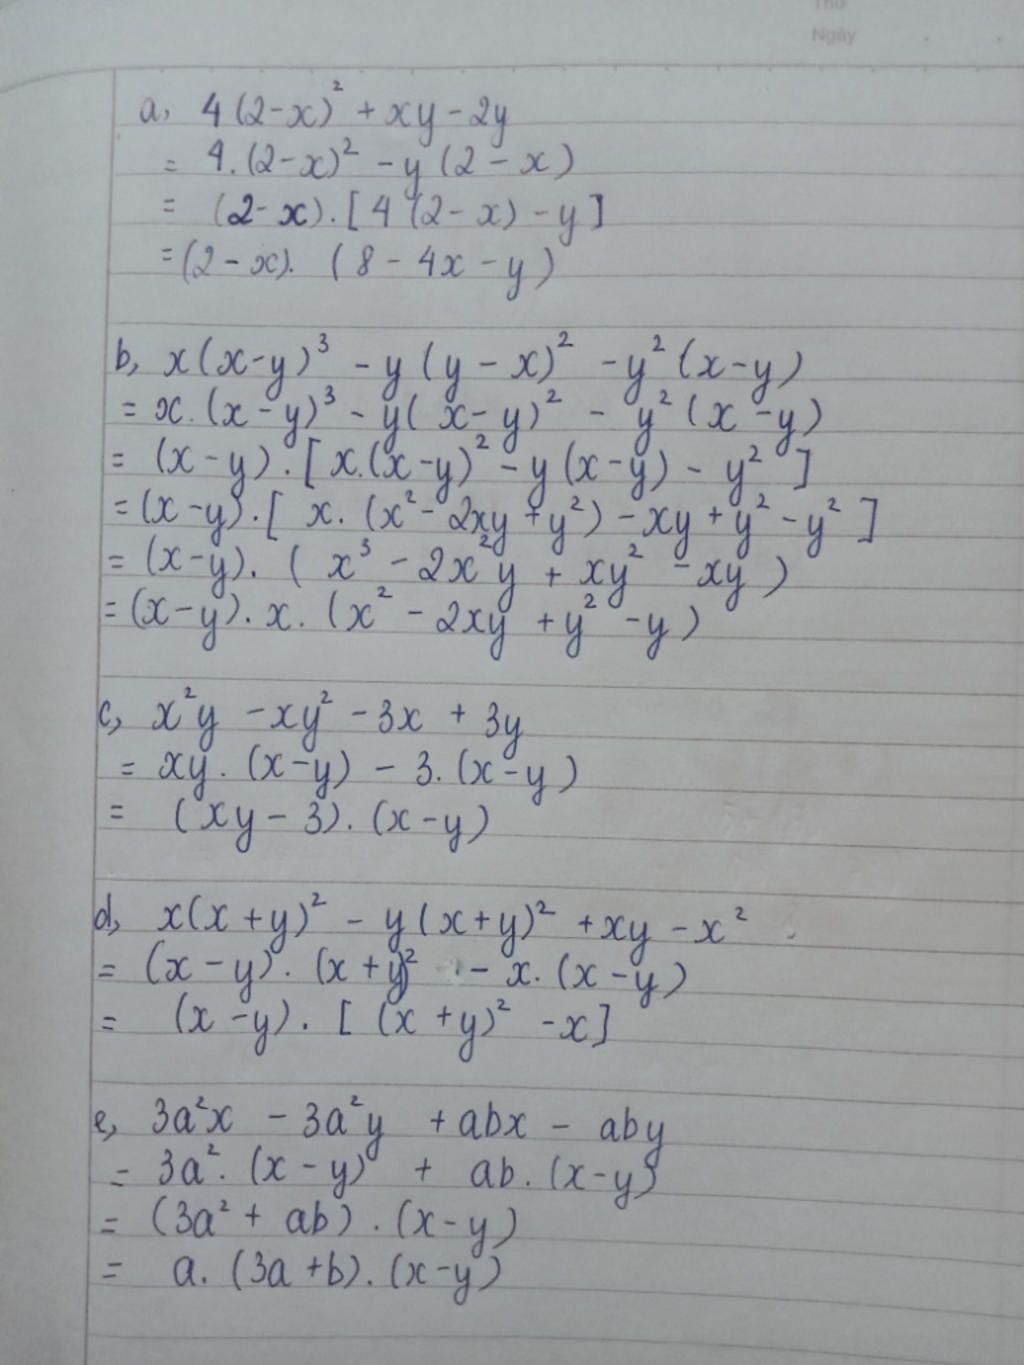 Thứ
Ngày
a, 4(2-x)² + xy - 2y
= 4.(2-x)² - y(2-x)
= (2-x).[4(2-x) - y]
= (2-x). (8 - 4x - y)
b, x(x-y)³ - y(y-x)² - y²(x-y)
= x.(x-y)³ - y(x-y)² - y²(x-y)
= (x-y).[x.(x-y)² - y(x-y) - y²]
= (x-y).[x.(x² - 2xy + y²) - xy + y² - y²]
= (x-y). (x³ - 2x²y + xy² - xy)
= (x-y). x. (x² - 2xy + y² - y)
c, x²y - xy² - 3x + 3y
= xy. (x-y) - 3.(x-y)
= (xy - 3). (x-y)
d, x(x+y)² - y(x+y)² + xy - x²
= (x-y). (x+y)² - x.(x-y)
= (x-y). [(x+y)² - x]
e, 3a²x - 3a²y + abx - aby
= 3a². (x-y) + ab. (x-y)
= (3a² + ab). (x-y)
= a. (3a+b). (x-y)